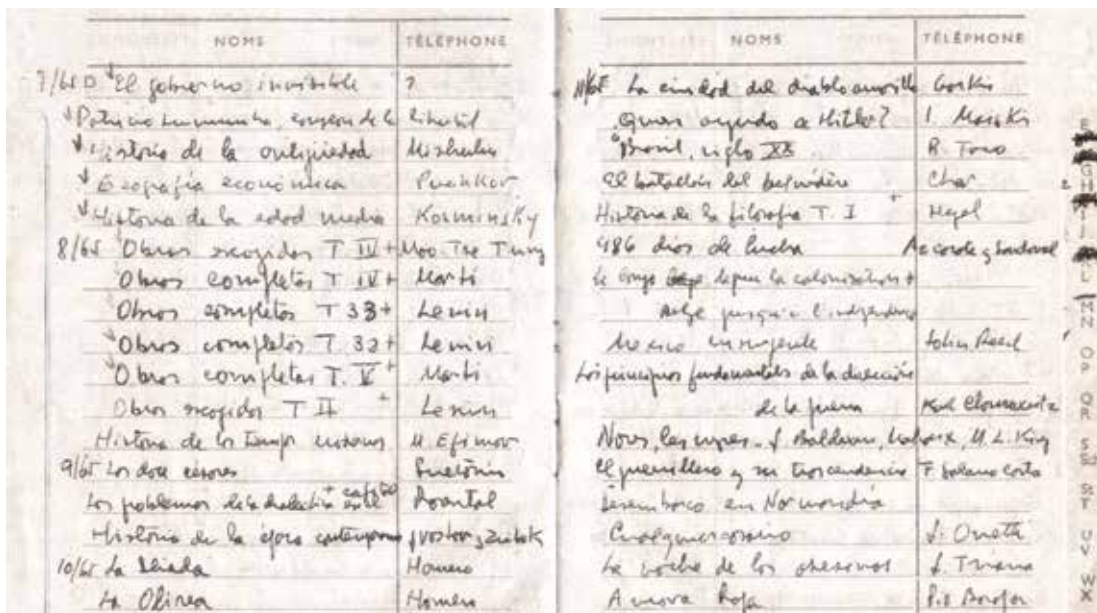 NOMS TÉLÉPHONE
7/65 D El gobierno invisible ?
Patricio Lumumba, de la libertad
Historia de la antigüedad Mishulin
Geografía económica
Historia de la edad media Kosminsky
8/65 Obras escogidas T IV + Mao Tse Tung
Obras completas T IV + Martí
Obras completas T 33 + Lenin
Obras completas T 32 + Lenin
Obras completas T. V + Martí
Obras escogidas T II + Lenin
Historia de los tiempos modernos Efimov
9/65 Los doce césares Suetonio
Los problemas de la dialéctica en el capital + Rosental
Historia de la época contemporanea
10/65 La Iliada Homero
La Odisea Homero
NOMS TÉLÉPHONE
La ciudad del diablo amarillo Gorkis
Quien ayudo a Hitler? I. Maiski
Brasil, siglo XX R. Faco
El batallón del
Historia de la filosofía T. I + Hegel
486 dias de lucha
le congo depuis la colonization +
belge jusqu'a l'independence
Mexico insurgente John Reed
Los principios fundamentales de la dirección
de la guerra Karl
Nous, les negres. J. Baldwin, Malcolm X, M. L. King
El guerrillero y su trascendencia F. Solano Costa
Desembarco en Normandía
J. Onetti
La noche de los asesinos J. Triana
Aurora Roja Pio Baroja
F
GH
L
MN
OP
QR
ST
UV
WX